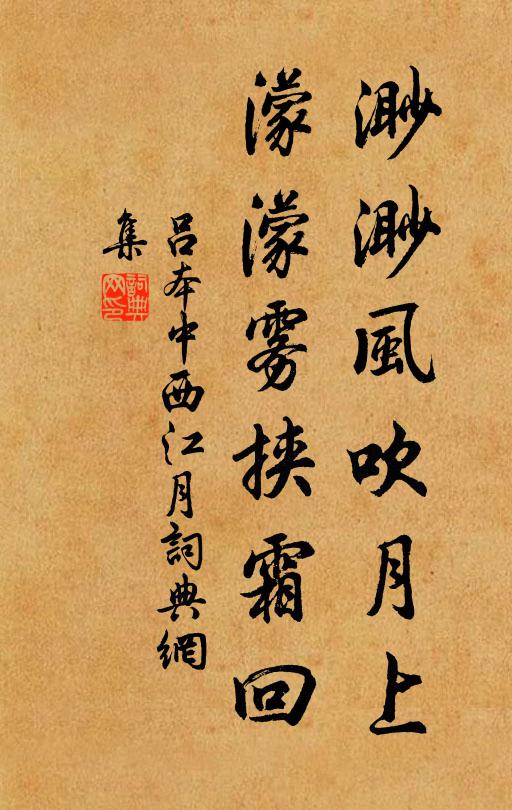 渺渺風吹月上
濛濛雾挾霜回
吕本中西江月詞典網
集
詞典
网印